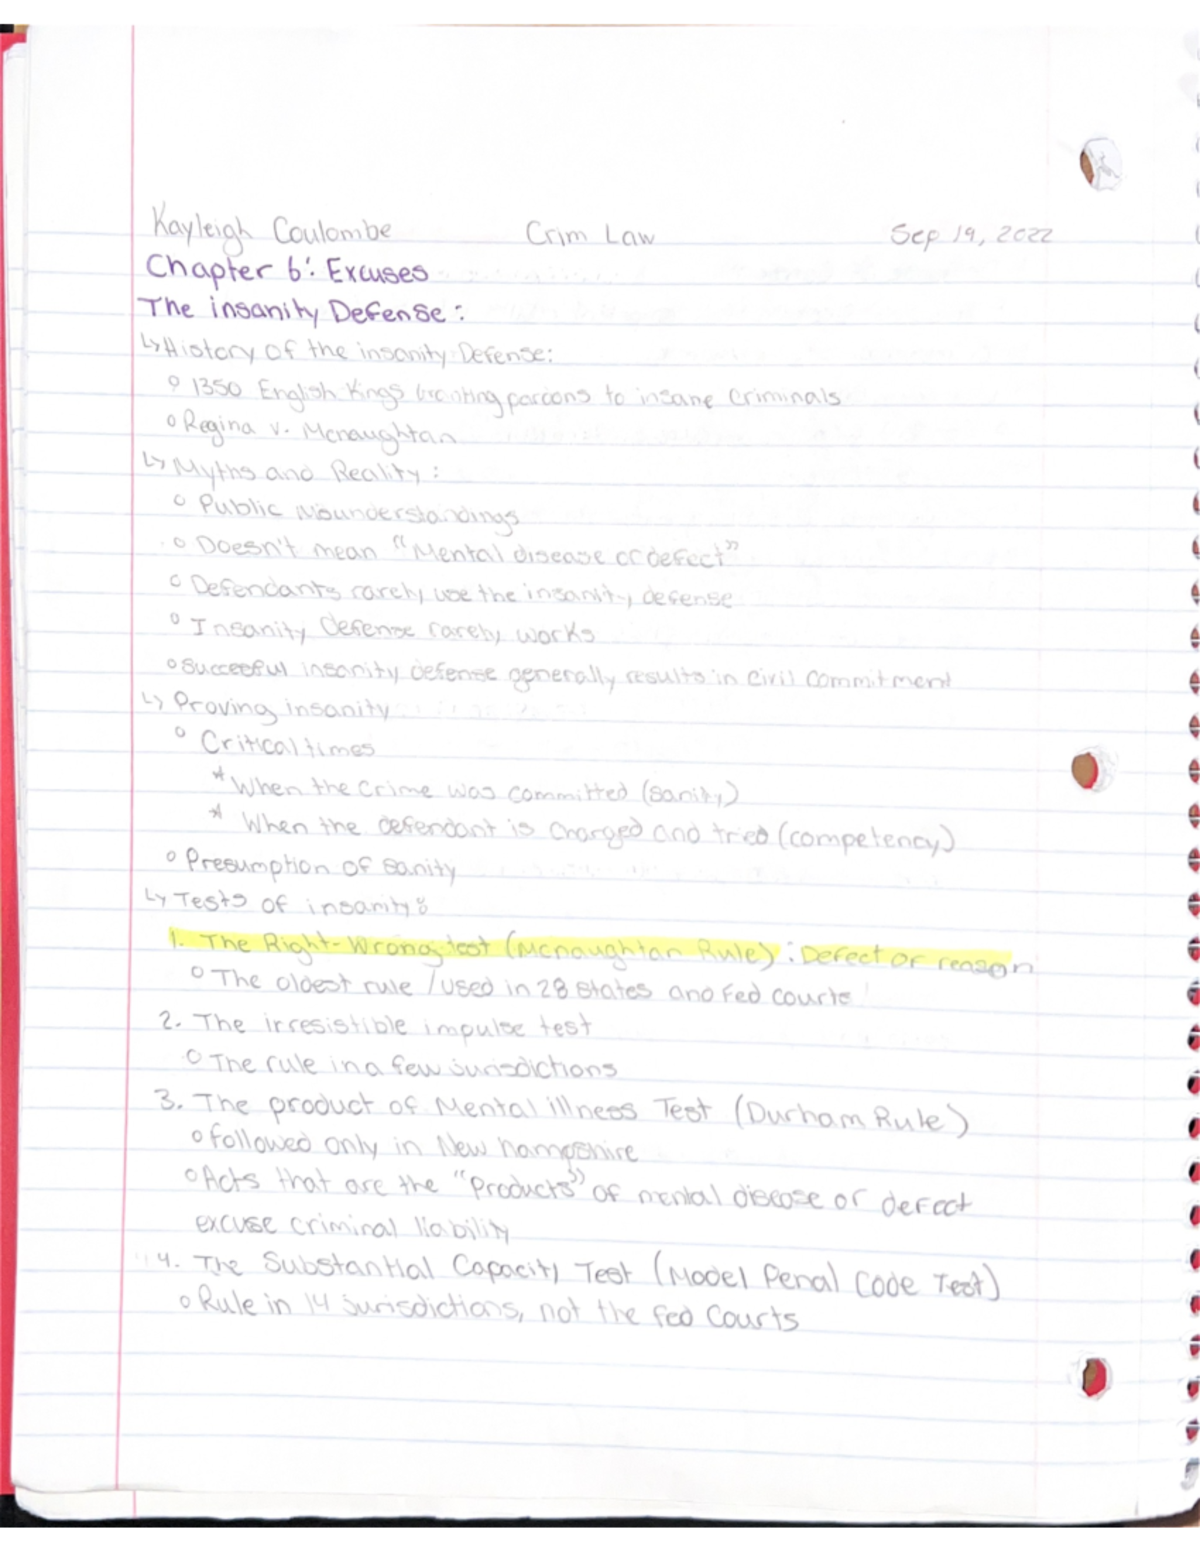 Kayleigh Coulombe Crim Law Sep 19, 2022
Chapter 6: Excuses
The insanity Defense:
↳History of the insanity Defense:
○ 1350 English Kings Granting pardons to insane Criminals
○ Regina v. Mcnaughtan
↳ Myths and Reality:
○ Public Misunderstandings
○ Doesn't mean "Mental disease or defect"
○ Defendants rarely use the insanity defense
○ Insanity Defense rarely works
○ Succesful insanity defense generally results in Civil Commitment
↳ Proving insanity
○ Critical times
* When the Crime was committed (Sanity)
* When the defendant is Charged and tried (competency)
○ Presumption of sanity
↳ Tests of insanity:
1. The Right-Wrong test (Mcnaughtan Rule): Defect of reason
○ The oldest rule / used in 28 states and Fed Courts
2. The irresistible impulse test
○ The rule in a few jurisdictions
3. The product of Mental illness Test (Durham Rule)
○ followed only in New hampshire
○ Acts that are the "Products" of mental disease or defect
excuse criminal liability
4. The Substantial Capacity Test (Model Penal Code Test)
○ Rule in 14 jurisdictions, not the Fed Courts